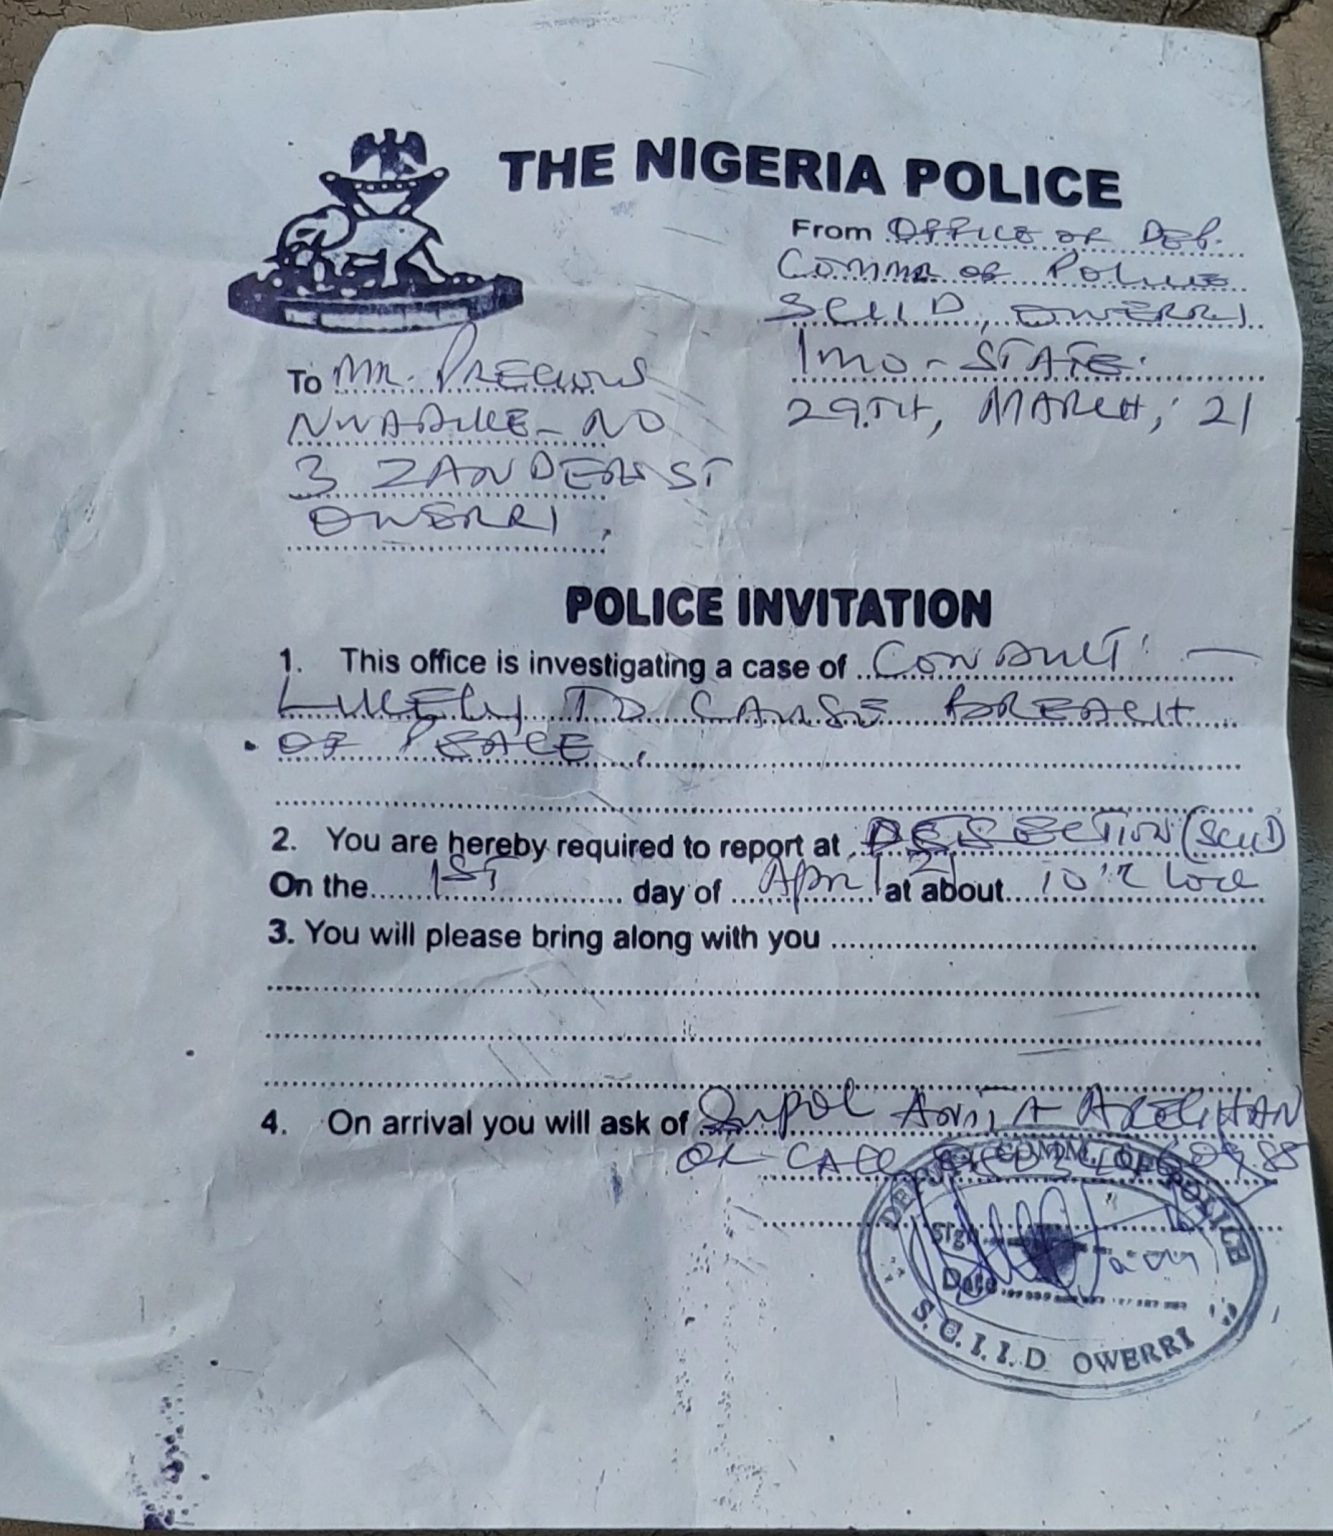 THE NIGERIA POLICE
From OFFICE OF DEP.
COMMR OF POLICE
SCIID, OWERRI
IMO-STATE.
29TH, MARCH, 21
To MR. PRECIOUS
NWADIKE - NO
3 ZANDERS ST
OWERRI.
POLICE INVITATION
1. This office is investigating a case of CONDUCT -
LIKELY TO CAUSE BREACH
OF PEACE.
2. You are hereby required to report at SECTION (SCIID)
On the 1ST day of April 21 at about 10'clock
3. You will please bring along with you
4. On arrival you will ask of ANITA
OR CALL
DEPUTY COMM. OF POLICE
Sign
Date
S.C.I.I.D OWERRI